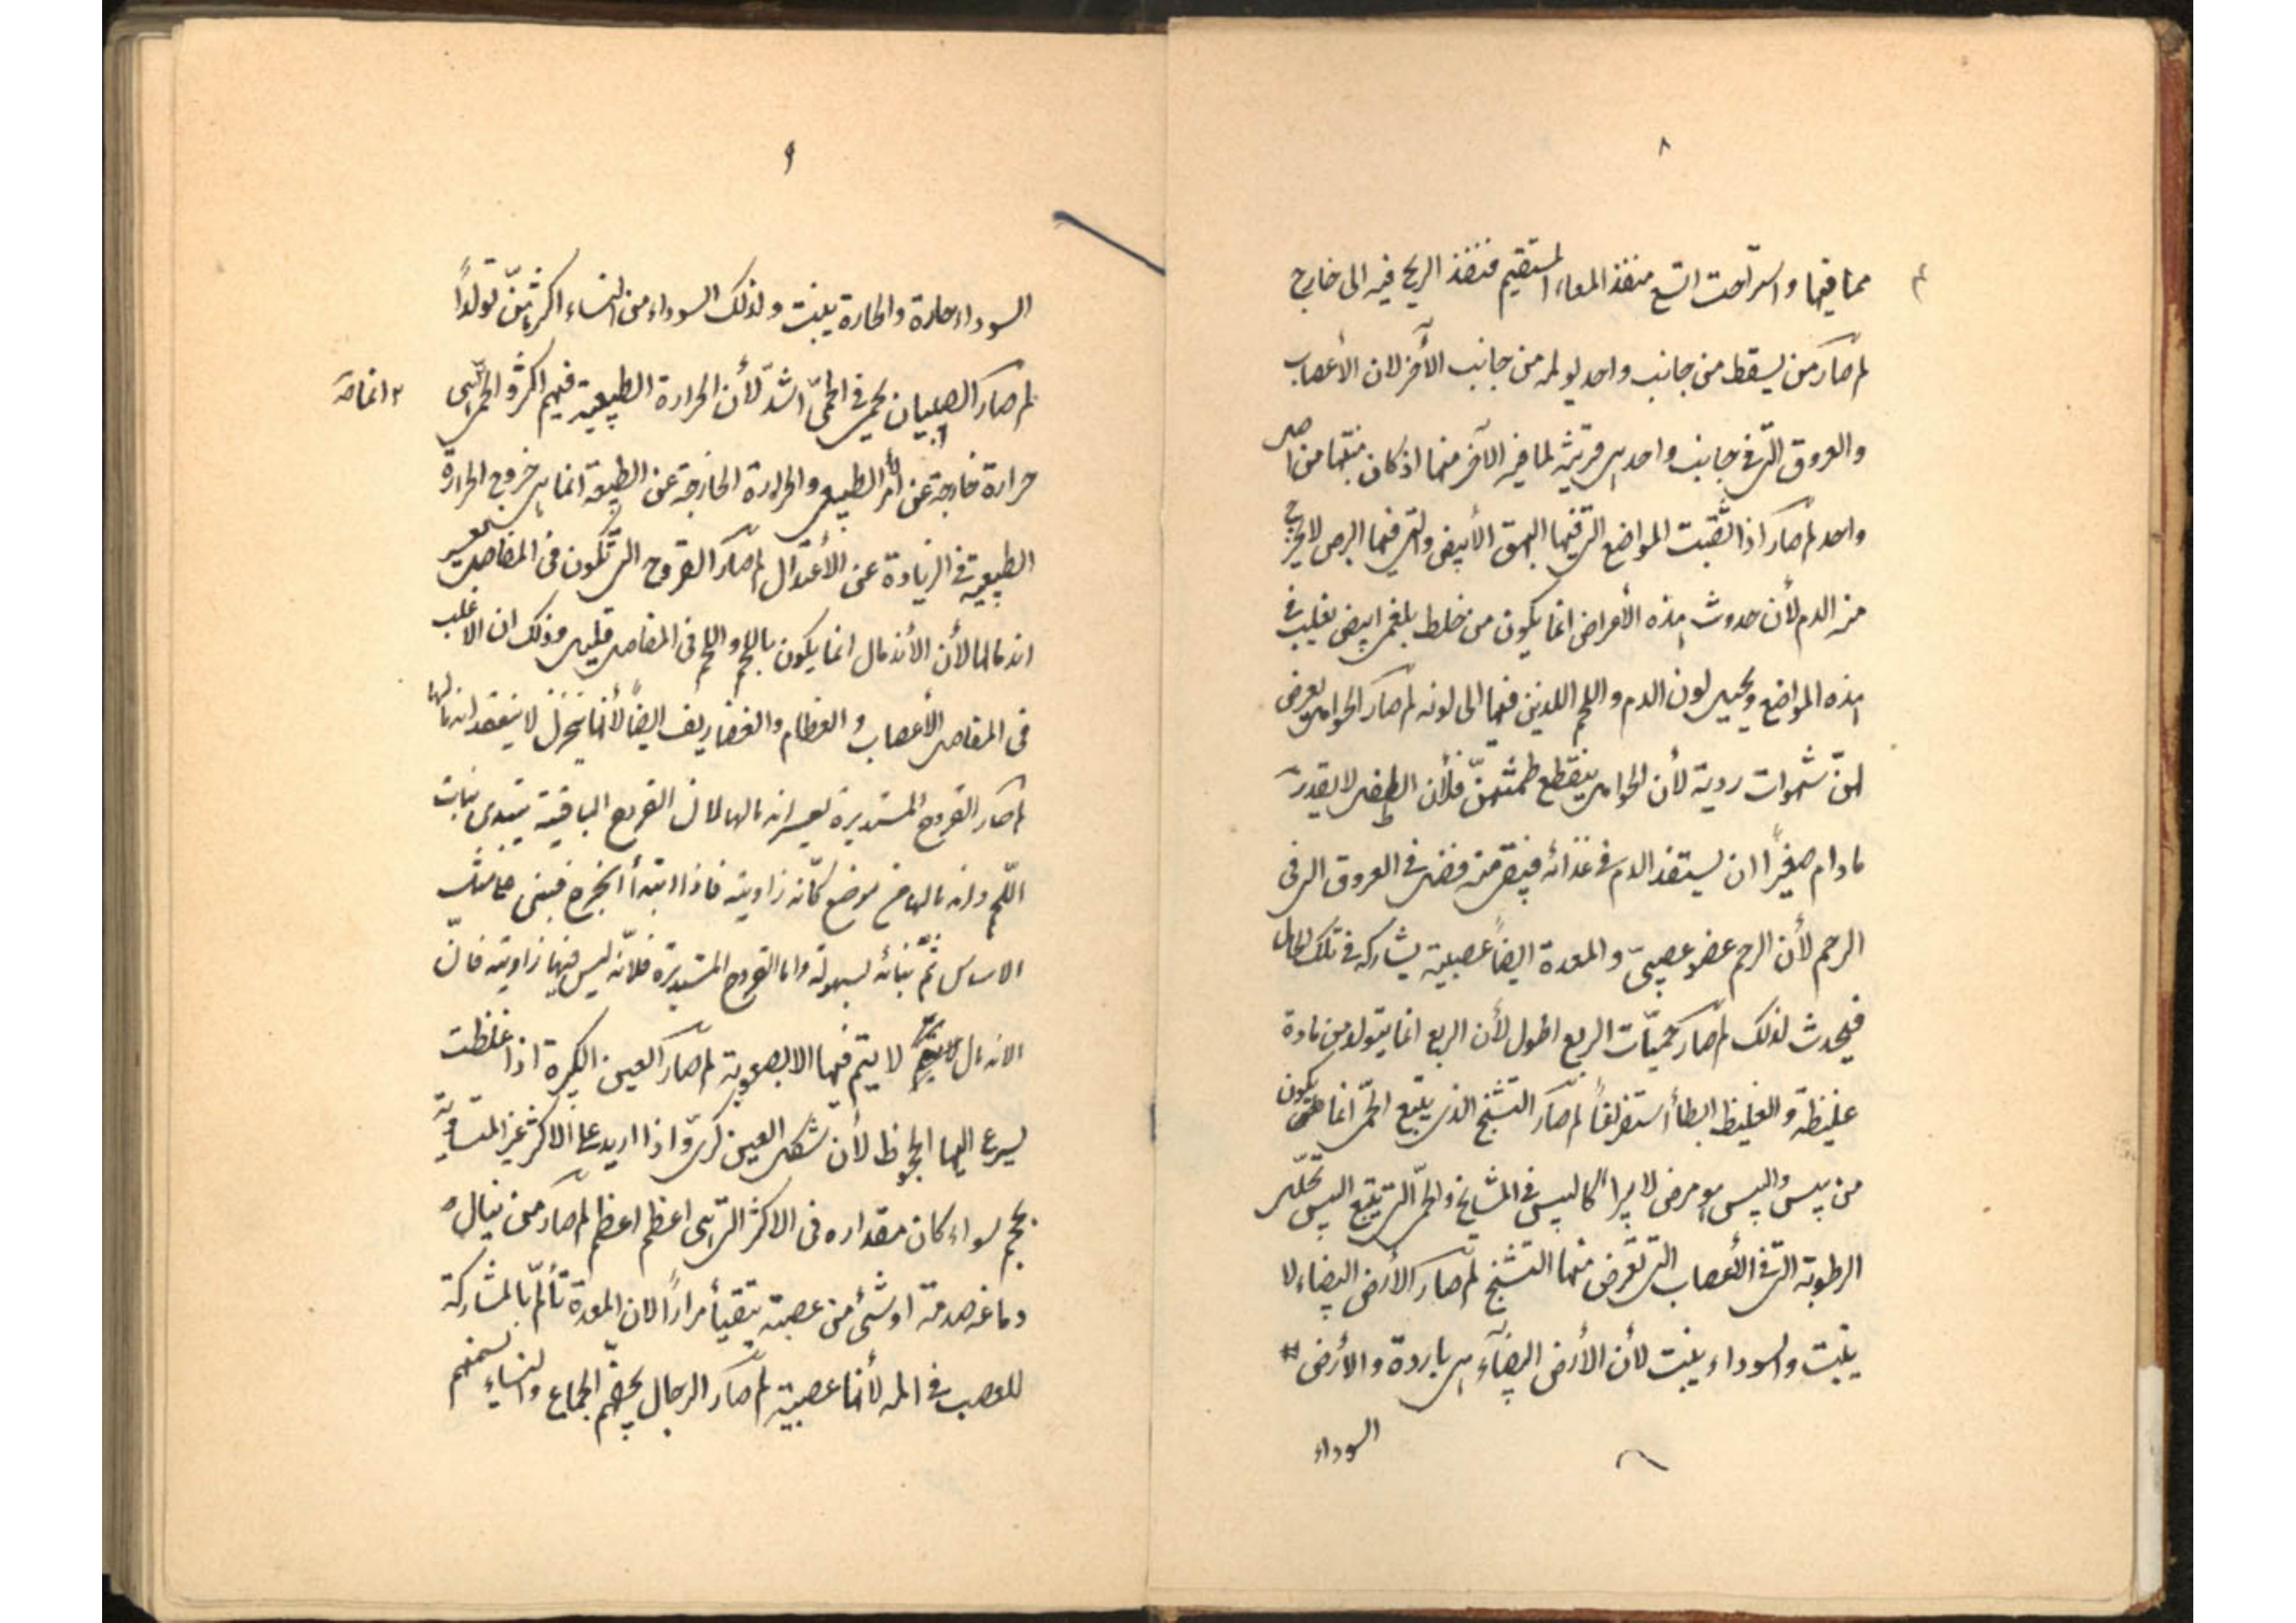 ٨
مما فيها واسترخت اتسع منفذ المعاء المستقيم فنفذ الريح فيه الى خارج
لم صار من يسقط من جانب واحد يولمه من جانب الآخر لان الأعصاب
والعروق التى فى جانب واحد هى قريبة لما فى الآخر منها اذ كان منبتها من اصل
واحد لم صار اذا ثقبت المواضع التى فيها البهق الأبيض والتى فيها البرص لا يخرج
منه الدم لأن حدوث هذه الأمراض انما يكون من خلط بلغمى ابيض يغلب فى
هذه المواضع ويحيل لون الدم واللحم اللذين فيها الى لونه لم صار الحوامل يعرض
لهنّ شهوات ردية لأن الحوامل ينقطع طمثهنّ فلأن الطفل لا يقدر
مادام صغيراً ان يستنفد الدم فى غذائه فيبقى منه فضل فى العروق التى فى
الرحم لأن الرحم عضو عصبىّ والمعدة ايضاً عصبية يشاركه فى تلك الحال
فيحدث لذلك لم صار حميّات الربع اطول لأن الربع انما يتولد من مادة
غليظة والغليظ ابطأ استفراغاً لم صار التشنج الذى يتبع الحمّى انما يكون
من يبس واليبس هو مرض لا يبرأ كاليبس فى المشايخ والحمّى التى يتبع اليبس تحلّل
الرطوبة التى فى الأعصاب التى تعرض منها التشنج لم صار الأرض البيضاء لا
ينبت والسوداء ينبت لأن الأرض البيضاء هى باردة والأرض
السوداء
٩
السوداء حارة والحارة ينبت ولذلك السوداء من النساء اكثرهنّ تولداً
لم صار الصبيان يحمى فى الحمّى اشدّ لأن الحرارة الطبيعية فيهم اكثر والحمّى هى
٢ انما صار
حرارة خارجة عن الأمر الطبيعى والحرارة الخارجة عن الطبيعة انما هى خروج الحرارة
الطبيعية فى الزيادة عن الأعتدال لم صار القروح التى تكون فى المفاصل يعسر
اندمالها لأن الأندمال انما يكون باللحم واللحم فى المفاصل قليل وذلك ان الاغلب
فى المفاصل الأعصاب والعظام والغضاريف ايضاً لأنها تتحرك لا ينعقد اندمالها
لم صار القروح المستديرة يعسر اندمالها لان القروح الباقية يبتدى نبات
اللحم واندمالها من موضع كأنه زاوية فاذا ابتدأ
الاساس ثمّ بنائه بسهولة واما القروح المستديرة فلانّه ليس فيها زاوية فانّ
الاندمال لا يتم فيها الا بصعوبة لم صار العين الكبيرة اذا غلظت
يسرع اليها الجحوظ لأن شكل العين كرىّ واذا اريد على الاكثر غير المتساوية
بحجم سواء كان مقداره فى الاكثر التى هى اعظم اعظم لم صار من ينال
دماغه صدمة او شئ من عصبية يتقيأ مراراً لان المعدة تألّم بالمشاركة
للعصب فى المه لأنها عصبية لم صار الرجال الجماع والنساء يسمنهم